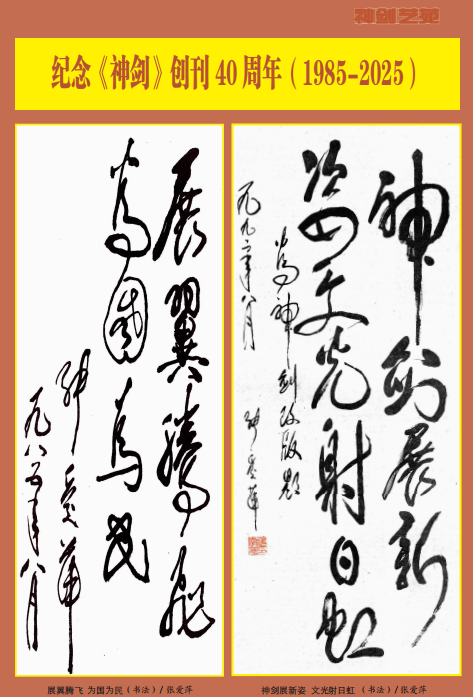 神剑艺苑
纪念《神剑》创刊40周年（1985-2025）
展翼腾飞
为国为民
张爱萍
一九八五年八月
神剑展新
姿四文光射日虹
为神剑改版题
张爱萍
一九九二年八月
展翼腾飞 为国为民（书法）/张爱萍
神剑展新姿 文光射日虹（书法）/张爱萍